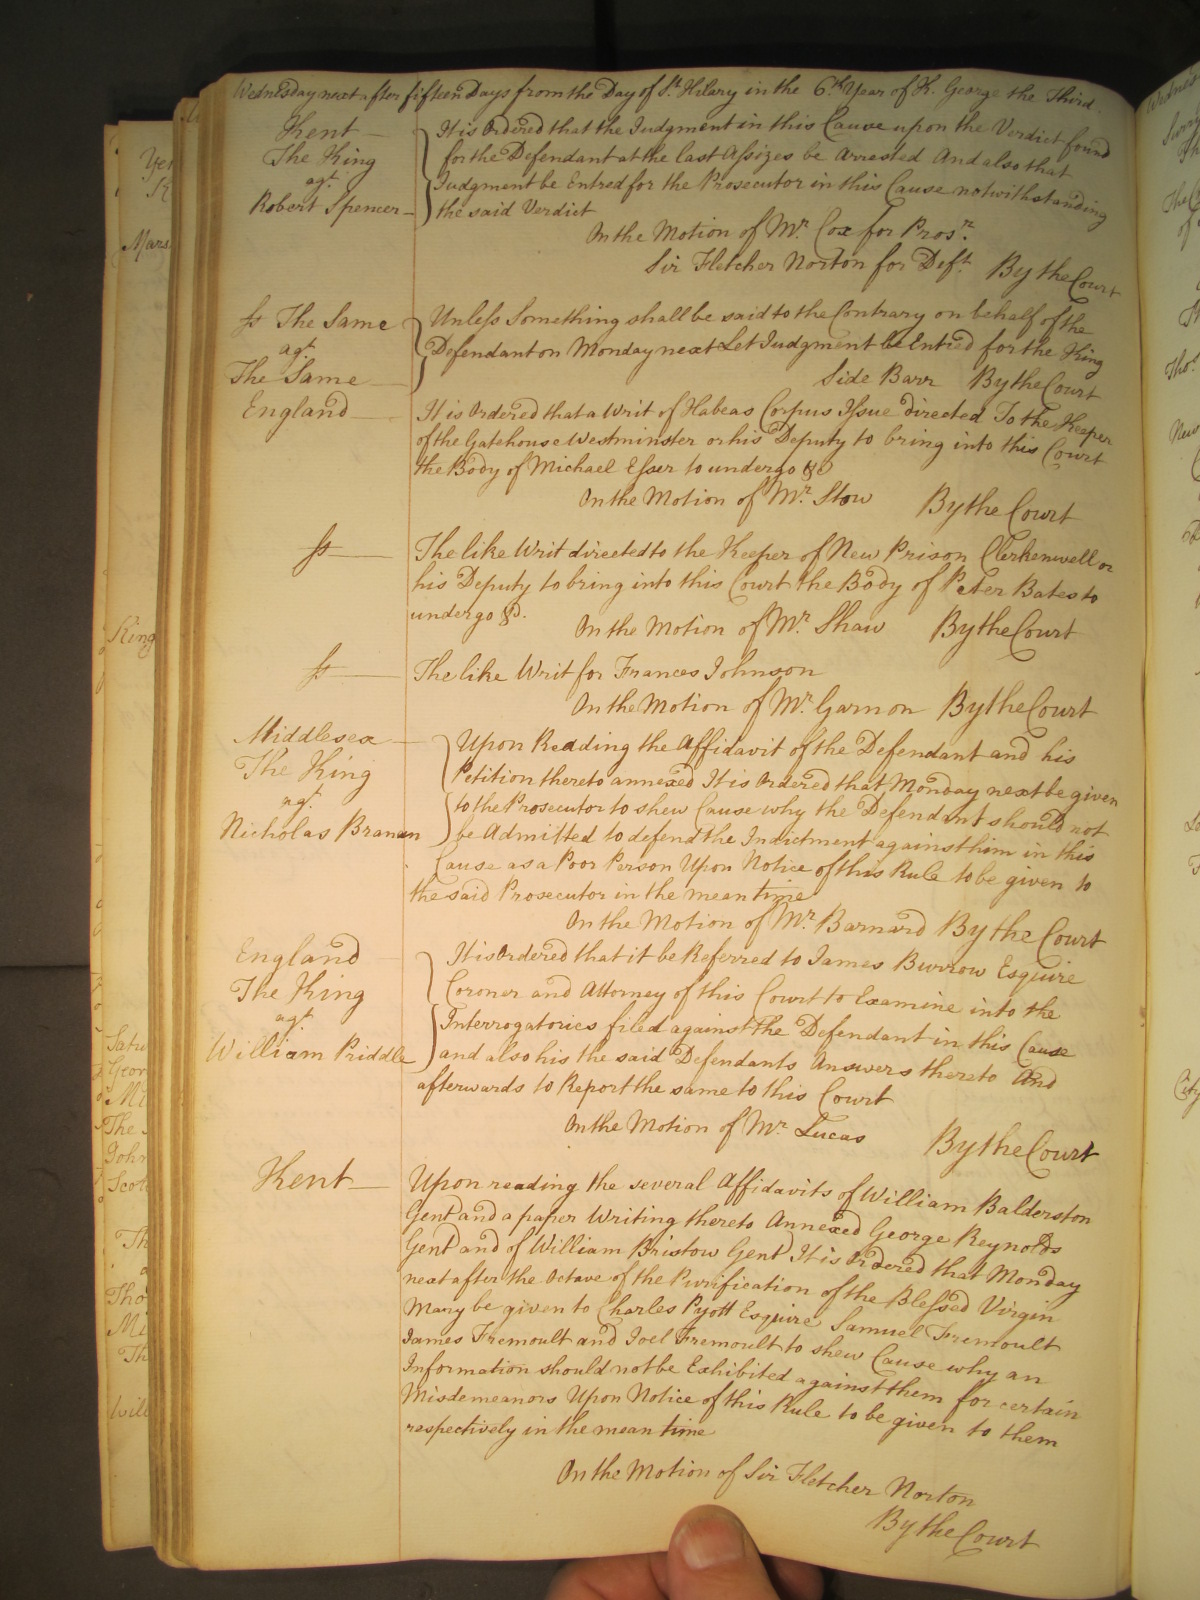 Wednesday next after fifteen Days from the Day of St. Hilary in the 6th Year of K. George the Third.
Kent
The King
agt.
Robert Spencer
It is Ordered that the Judgment in this Cause upon the Verdict found
for the Defendant at the last Assizes be Arrested And also that
Judgment be Entred for the Prosecutor in this Cause notwithstanding
the said Verdict
On the Motion of Mr. Cox for Prosr.
Sir Fletcher Norton for Deft. By the Court
ss The Same
agt.
The Same
Unless Something shall be said to the Contrary on behalf of the
Defendant on Monday next Let Judgment be Entred for the King
Side Barr By the Court
England
It is Ordered that a Writ of Habeas Corpus Issue directed To the Keeper
of the Gatehouse Westminster or his Deputy to bring into this Court
the Body of Michael Esser to undergo &c
On the Motion of Mr. Stow By the Court
ss
The like Writ directed to the Keeper of New Prison Clerkenwell or
his Deputy to bring into this Court the Body of Peter Bates to
undergo &c.
On the Motion of Mr. Shaw By the Court
ss
The like Writ for Frances Johnson
On the Motion of Mr. Garnon By the Court
Middlesex
The King
agt.
Nicholas Branan
Upon Reading the Affidavit of the Defendant and his
Petition thereto annexed It is Ordered that Monday next be given
to the Prosecutor to shew Cause why the Defendant should not
be Admitted to defend the Indictment against him in this
Cause as a Poor Person Upon Notice of this Rule to be given to
the said Prosecutor in the mean time
On the Motion of Mr. Barnard By the Court
England
The King
agt.
William Priddle
It is Ordered that it be Referred to James Burrow Esquire
Coroner and Attorney of this Court to Examine into the
Interrogatories filed against the Defendant in this Cause
and also his the said Defendants Answers thereto And
afterwards to Report the same to this Court
On the Motion of Mr. Lucas By the Court
Kent
Upon reading the several Affidavits of William Balderston
Gent and a paper Writing thereto Annexed George Reynolds
Gent and of William Bristow Gent It is Ordered that Monday
next after the Octave of the Purification of the Blessed Virgin
Mary be given to Charles Pyott Esquire Samuel Fremoult
James Fremoult and Joel Fremoult to shew Cause why an
Information should not be Exhibited against them for certain
Misdemeanors Upon Notice of this Rule to be given to them
respectively in the mean time
On the Motion of Sir Fletcher Norton
By the Court